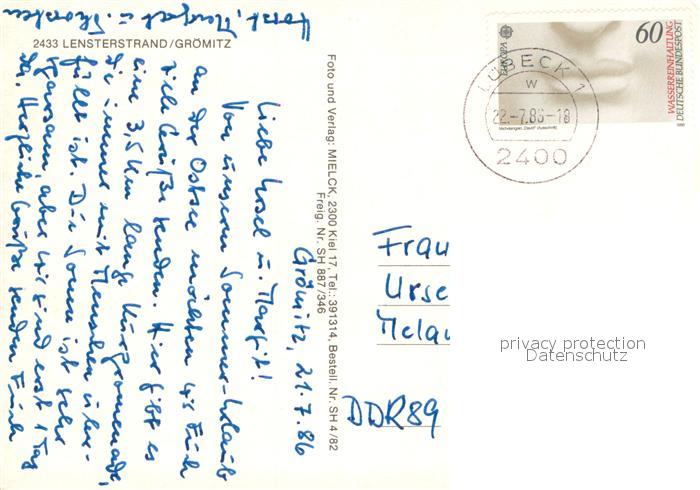 2433 LENSTERSTRAND/GRÖMITZ
Grömitz, 21.7.86
Liebe Ursel u. Margit!
Von unserem Sommer-Urlaub
an der Ostsee möchten wir Euch
viele Grüße senden. Hier gibt es
eine 3,5 km lange Kurpromenade,
die immer mit Menschen über-
füllt ist. Die Sonne ist sehr
sparsam, aber wir sind erst 1 Tag
da. Herzliche Grüße senden Euch
Horst, Margot u. Thorsten
Foto und Verlag: MIELCK, 2300 Kiel 17, Tel.: 391314, Bestell. Nr. SH 4/82
Freig. Nr. SH 887/346
EUROPA
60
WASSERREINHALTUNG
DEUTSCHE BUNDESPOST
LÜBECK 1
W
22.-7.86-18
2400
Frau
Urse
Melau
DDR 89
privacy protection
Datenschutz